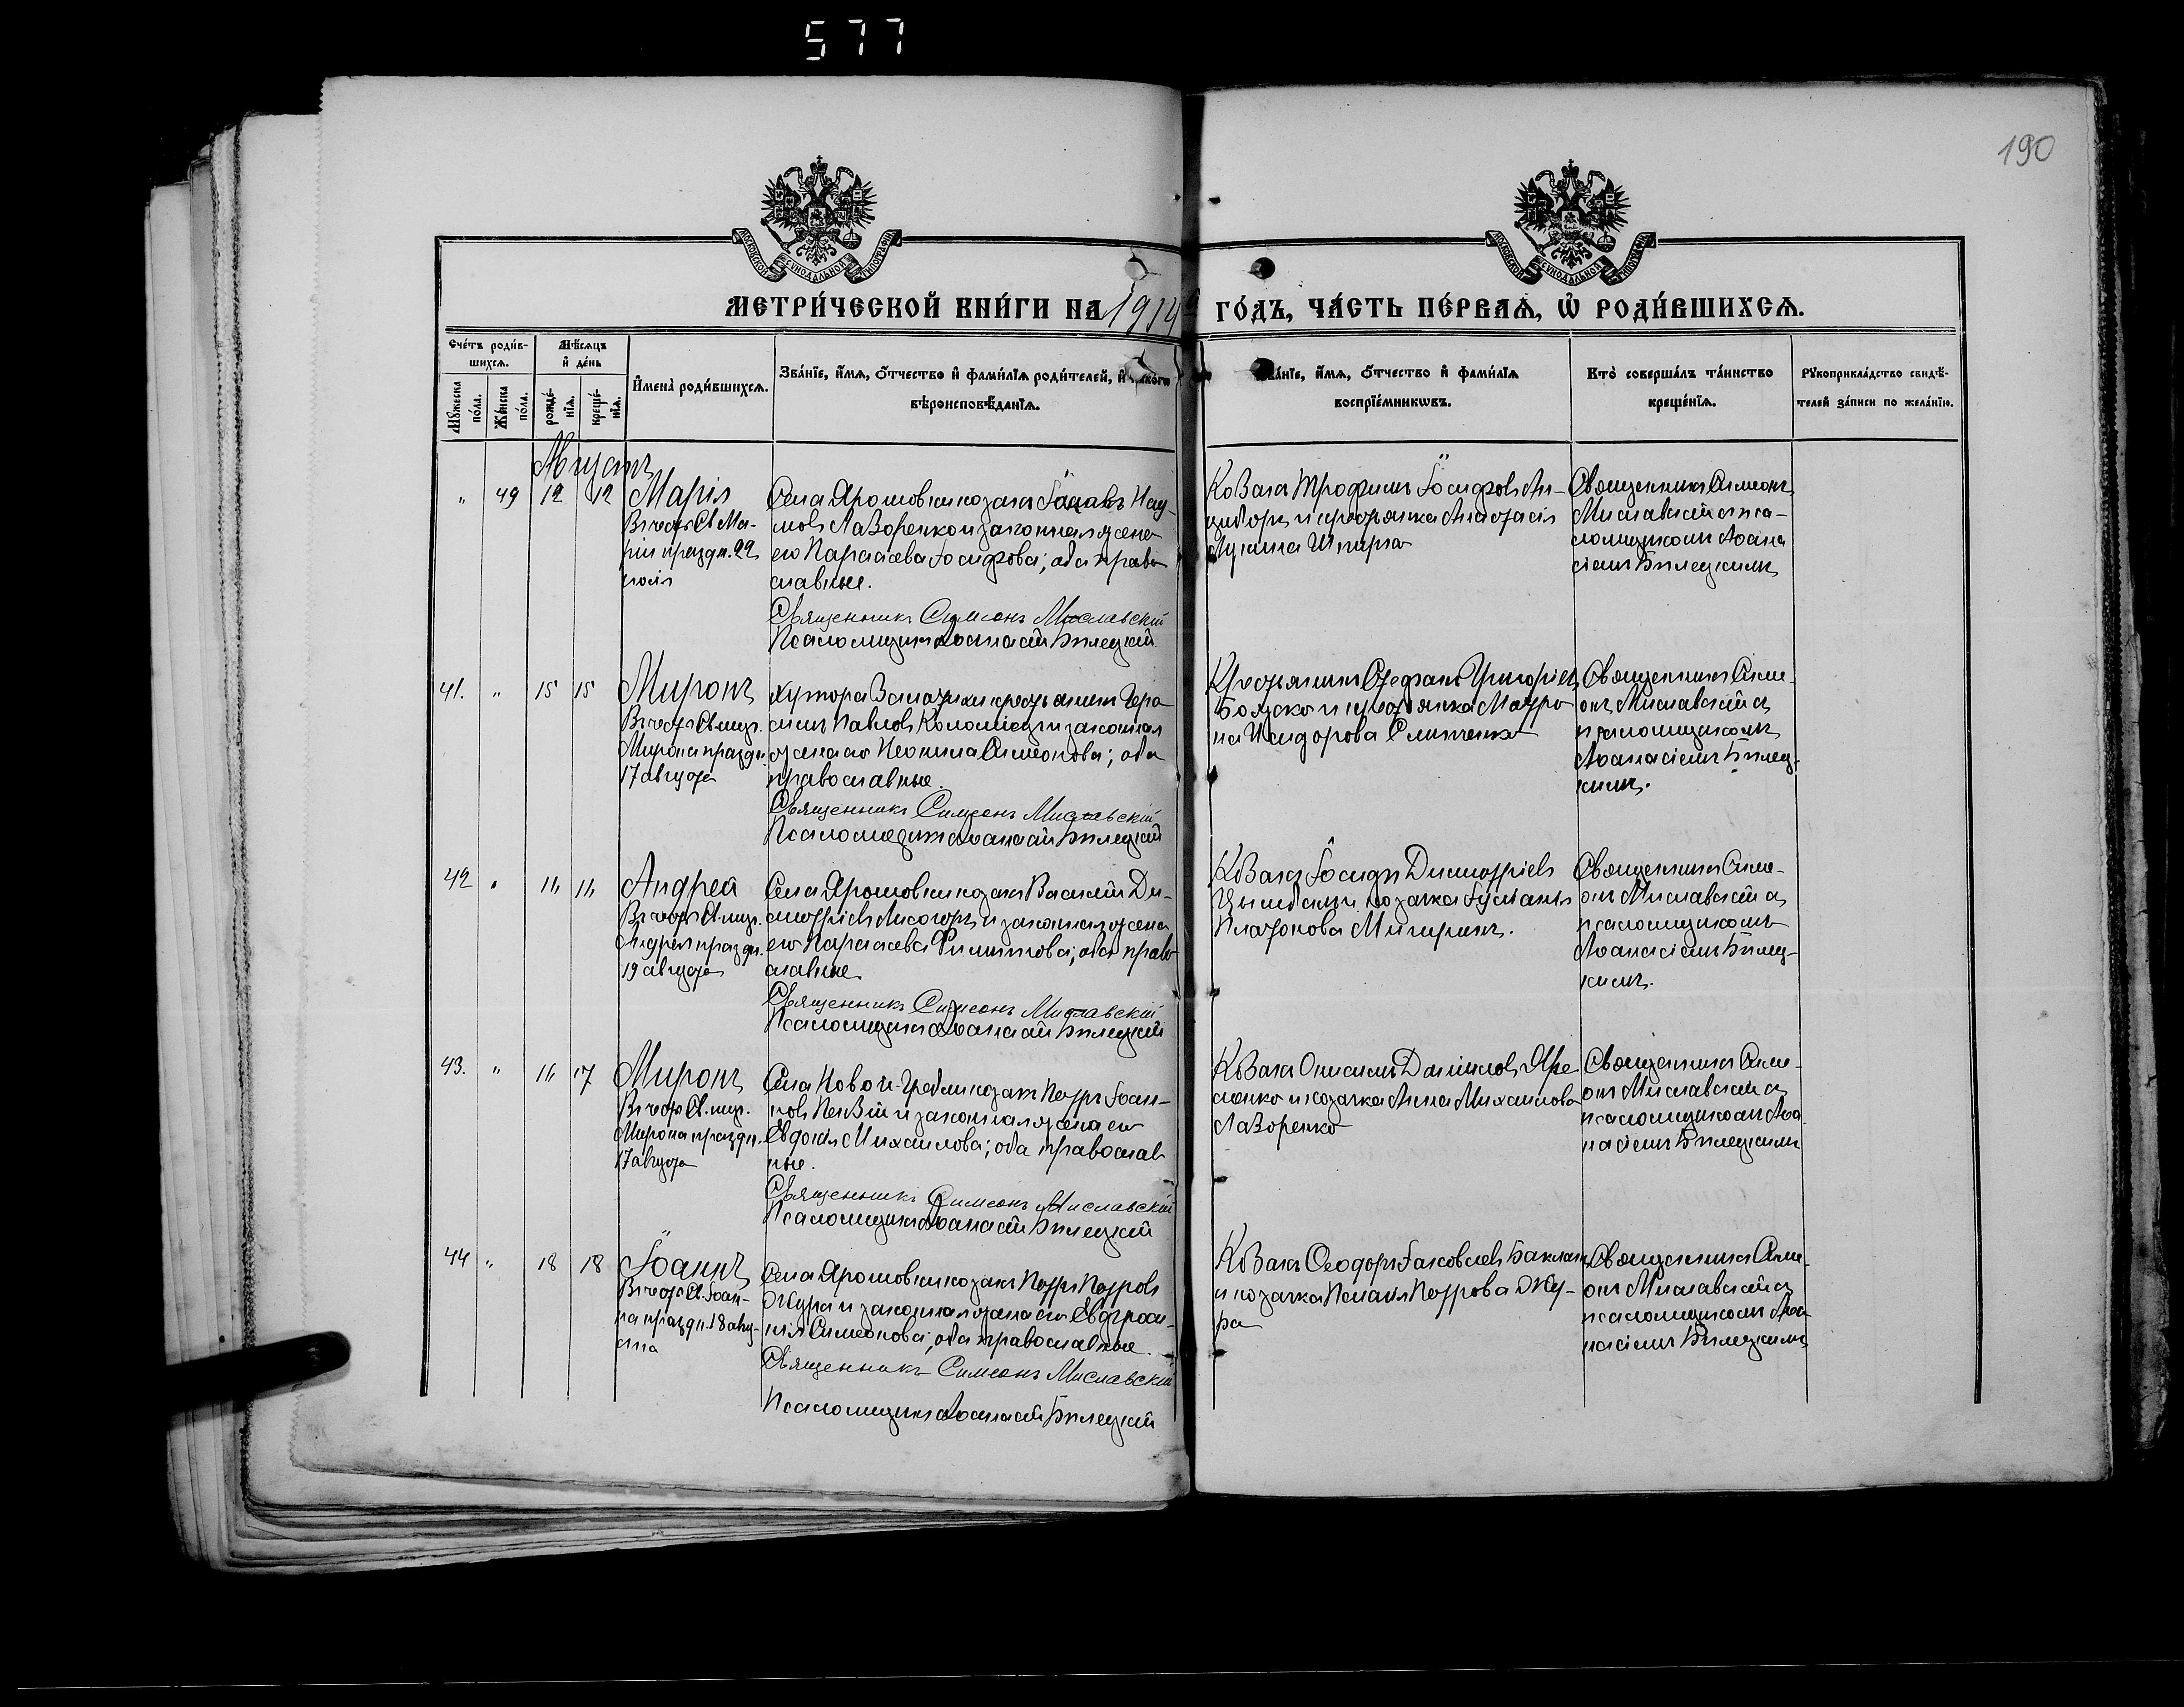 577
190
МОСКОВСКОЙ СѴНОДАЛЬНОЙ ТИПОГРАФІИ
МОСКОВСКОЙ СѴНОДАЛЬНОЙ ТИПОГРАФІИ
МЕТРИ́ЧЕСКОЙ КНИ́ГИ НА 1914 ГО́ДЪ, ЧА́СТЬ ПЕ́РВАѦ, Ѡ РОДИ́ВШИХСѦ.
Сче́тъ роди́в-
шихсѧ.
Мꙋжеска
по́ла.
Же́нска
по́ла.
Мѣ́сѧцъ
и҆ де́нь
рожде́-
нїѧ.
креще́-
нїѧ.
И҆мена̀ роди́вшихсѧ.
Зва́нїе, и҆́мѧ, ѻ҆́тчество и҆ фами́лїѧ роди́телей, и҆ какогѡ
вѣроисповѣ́данїѧ.
Зва́нїе, и҆́мѧ, ѻ҆́тчество и҆ фами́лїѧ
воспрїе́мникѡвъ.
Кто̀ соверша́лъ та́инство
креще́нїѧ.
Рꙋкоприкла́дство свидѣ́-
телей за́писи по жела́нїю.
Августъ
" 49 12 12 Марія
Въ честь Св. Ма-
ріи праздн. 22
іюля
Села Ярошовки козакъ Нау-
мовъ Лазоренко и законная жена
его Параскева Іосифова; оба право
славные.
Священникъ Симеонъ Миславскій
Псаломщикъ Аѳанасій Билецкій
Козакъ Трофимъ Іосифовъ
и крестьянка Анастасія
Священникъ Симеонъ
Миславскій съ пса-
ломщикомъ Аѳана
сіемъ Билецкимъ
41. " 15 15 Миронъ
Въ честь Св. муч.
Мирона праздн.
17 августа
Хутора крестьянинъ Гера
симъ Павловъ Коломіецъ и законная
жена его Симеонова; оба
православные.
Священникъ Симеонъ Миславскій
Псаломщикъ Аѳанасій Билецкій
Крестьянинъ Стефанъ Григорьевъ
и крестьянка Матро
на Исидорова
Священникъ Симе-
онъ Миславскій съ
псаломщикомъ
Аѳанасіемъ Билец-
кимъ.
42 " 16 16 Андрей
Въ честь Св. муч.
Андрея праздн.
19 августа
Села Ярошовки козакъ Василій Ди-
митріевъ Лисогоръ и законная жена
его Параскева Филиппова; оба право
славные.
Священникъ Симеонъ Миславскій
Псаломщикъ Аѳанасій Билецкій
Козакъ Іосифъ Димитріевъ
и козачка Іуліанія
Платонова
Священникъ Симе-
онъ Миславскій съ
псаломщикомъ
Аѳанасіемъ Билец-
кимъ.
43. " 16 17 Миронъ
Въ честь Св. муч.
Мирона праздн.
17 августа
Села Ново-Гребли козакъ Петръ Іоан-
новъ и законная жена его
Евдокія Михаилова; оба православ
ные.
Священникъ Симеонъ Миславскій
Псаломщикъ Аѳанасій Билецкій
Козакъ Онисимъ Даниловъ Яре
менко и козачка Анна Михаилова
Лазоренко
Священникъ Симе-
онъ Миславскій съ
псаломщикомъ Аѳа
насіемъ Билецкимъ
44 " 18 18 Іоаннъ
Въ честь Св. Іоан-
на праздн. 18 авгу-
ста
Села Ярошовки козакъ Петръ Петровъ
Джура и законная жена его Евфроси-
нія Симеонова; оба православные.
Священникъ Симеонъ Миславскій
Псаломщикъ Аѳанасій Билецкій
Козакъ Ѳеодоръ Іаковлевъ Баклан
и козачка Пелагія Петрова Джу-
ра
Священникъ Симе-
онъ Миславскій съ
псаломщикомъ Аѳа-
насіемъ Билецкимъ